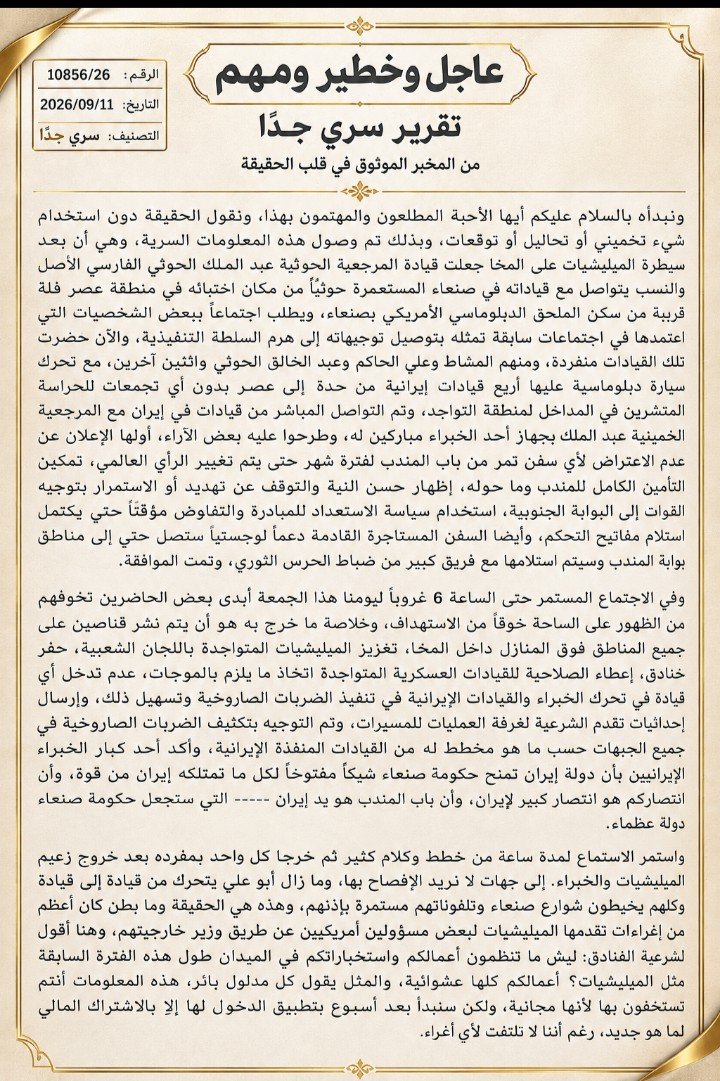 عاجل وخطير ومهم
الرقم: 10856/26
التاريخ: 2026/09/11
التصنيف: سري جدًا
تقرير سري جدًا
من المخبر الموثوق في قلب الحقيقة
ونبدأه بالسلام عليكم أيها الأحبة المطلعون والمهتمون بهذا، ونقول الحقيقة دون استخدام
شيء تخميني أو تحاليل أو توقعات، وبذلك تم وصول هذه المعلومات السرية، وهي أن بعد
سيطرة الميليشيات على المخا جعلت قيادة المرجعية الحوثية عبد الملك الحوثي الفارسي الأصل
والنسب يتواصل مع قياداته في صنعاء المستعمرة حوثيًا من مكان اختبائه في منطقة عصر فلة
قريبة من سكن الملحق الدبلوماسي الأمريكي بصنعاء، ويطلب اجتماعاً ببعض الشخصيات التي
اعتمدها في اجتماعات سابقة تمثله بتوصيل توجيهاته إلى هرم السلطة التنفيذية، والآن حضرت
تلك القيادات منفردة، ومنهم المشاط وعلي الحاكم وعبد الخالق الحوثي واثتين آخرين، مع تحرك
سيارة دبلوماسية عليها أربع قيادات إيرانية من حدة إلى عصر بدون أي تجمعات للحراسة
المتشرين في المداخل لمنطقة التواجد، وتم التواصل المباشر من قيادات في إيران مع المرجعية
الخمينية عبد الملك بجهاز أحد الخبراء مباركين له، وطرحوا عليه بعض الآراء، أولها الإعلان عن
عدم الاعتراض لأي سفن تمر من باب المندب لفترة شهر حتى يتم تغيير الرأي العالمي، تمكين
التأمين الكامل للمندب وما حوله، إظهار حسن النية والتوقف عن تهديد أو الاستمرار بتوجيه
القوات إلى البوابة الجنوبية، استخدام سياسة الاستعداد للمبادرة والتفاوض مؤقتًاً حتي يكتمل
استلام مفاتيح التحكم، وأيضا السفن المستاجرة القادمة دعماً لوجستياً ستصل حتي إلى مناطق
بوابة المندب وسيتم استلامها مع فريق كبير من ضباط الحرس الثوري، وتمت الموافقة.
وفي الاجتماع المستمر حتى الساعة 6 غروباً ليومنا هذا الجمعة أبدى بعض الحاضرين تخوفهم
من الظهور على الساحة خوفاً من الاستهداف، وخلاصة ما خرج به هو أن يتم نشر قناصين على
جميع المناطق فوق المنازل داخل المخا، تغزيز الميليشيات المتواجدة باللجان الشعبية، حفر
خنادق، إعطاء الصلاحية للقيادات العسكرية المتواجدة اتخاذ ما يلزم بالموجات، عدم تدخل أي
قيادة في تحرك الخبراء والقيادات الإيرانية في تنفيذ الضربات الصاروخية وتسهيل ذلك، وإرسال
إحداثيات تقدم الشرعية لغرفة العمليات للمسيرات، وتم التوجيه بتكثيف الضربات الصاروخية في
جميع الجبهات حسب ما هو مخطط له من القيادات المنفذة الإيرانية، وأكد أحد كبار الخبراء
الإيرانيين بأن دولة إيران تمنح حكومة صنعاء شيكاً مفتوخاً لكل ما تمتلكه إيران من قوة، وأن
انتصاركم هو انتصار كبير لإيران، وأن باب المندب هو يد إيران ----- التي ستجعل حكومة صنعاء
دولة عظماء.
واستمر الاستماع لمدة ساعة من خطط وكلام كثير ثم خرجا كل واحد بمفرده بعد خروج زعيم
الميليشيات والخبراء. إلى جهات لا نريد الإفصاح بها، وما زال أبو علي يتحرك من قيادة إلى قيادة
وكلهم يخيطون شوارع صنعاء وتلفوناتهم مستمرة بإذنهم، وهذه هي الحقيقة وما بطن كان أعظم
من إغراءات تقدمها الميليشيات لبعض مسؤولين أمريكيين عن طريق وزير خارجيتهم، وهنا أقول
لشرعية الفنادق: ليش ما تنظمون أعمالكم واستخباراتكم في الميدان طول هذه الفترة السابقة
مثل الميليشيات؟ أعمالكم كلها عشوائية، والمثل يقول كل مدلول بائر، هذه المعلومات أنتم
تستخفون بها لأنها مجانية، ولكن سنبدأ بعد أسبوع بتطبيق الدخول لها إلا بالاشتراك المالي
لما هو جديد، رغم أننا لا تلتفت لأي أغراء.